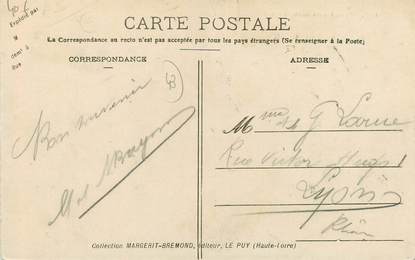 Expédié par
M
demt à
Rue
CARTE POSTALE
La Correspondance au recto n'est pas acceptée par tous les pays étrangers (Se renseigner à la Poste)
CORRESPONDANCE
ADRESSE
Bon souvenir
M et
Mme G Larue
Rue Victor Hugo 1
Lyon
Rhône
Collection MARGERIT-BREMOND, éditeur, LE PUY (Haute-Loire)